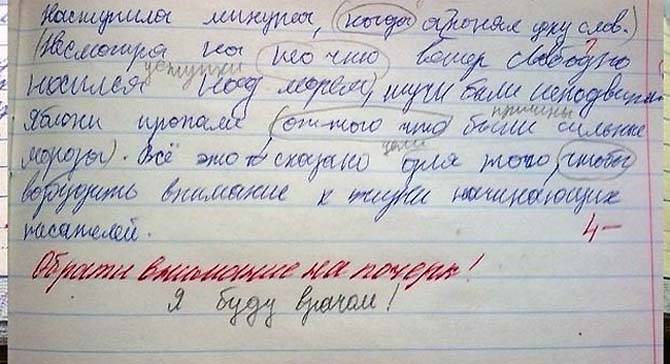 Наступила минута, (когда я понял уку слов.)
(Несмотря на нео что ветер свободно
уступки
носился над морем, тучи были неподвижн
причины
Яблони пропали (оттого что были сильные
цели
морозы). Всё это сказано для того, чтобы
возбудить внимание к жизни начинающих
писателей.
4-
Обрати внимание на почерк!
Я буду врачом!